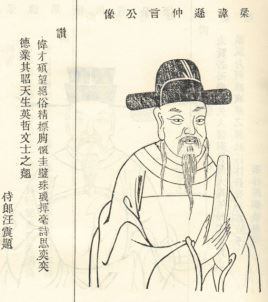 梁諱遜仲言公像
讚
偉才碩望俗精標胸懷圭璧珠璣揮毫詩思奕奕
德業其昭天生英哲文士之翹
侍郎汪震題